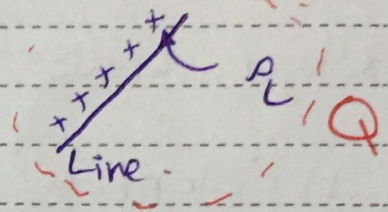 + + + + +
ρL
Q
Line.